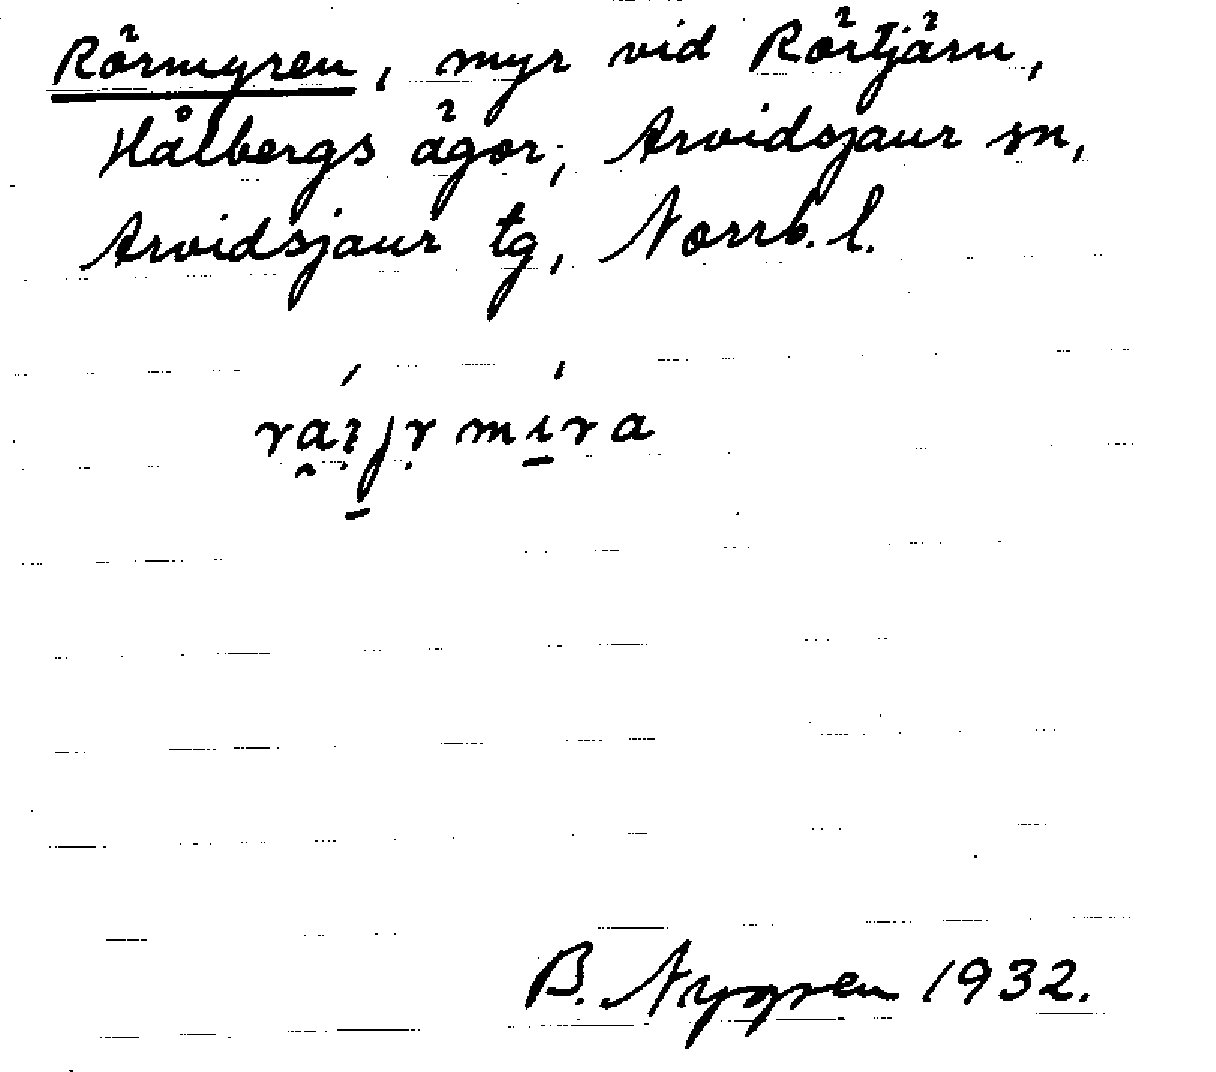 Rörmyren, myr vid Rörtjärn,
Hålbergs ägor, Arvidsjaur sn,
Arvidsjaur tg, Norrb. l.
B. Nygren 1932.